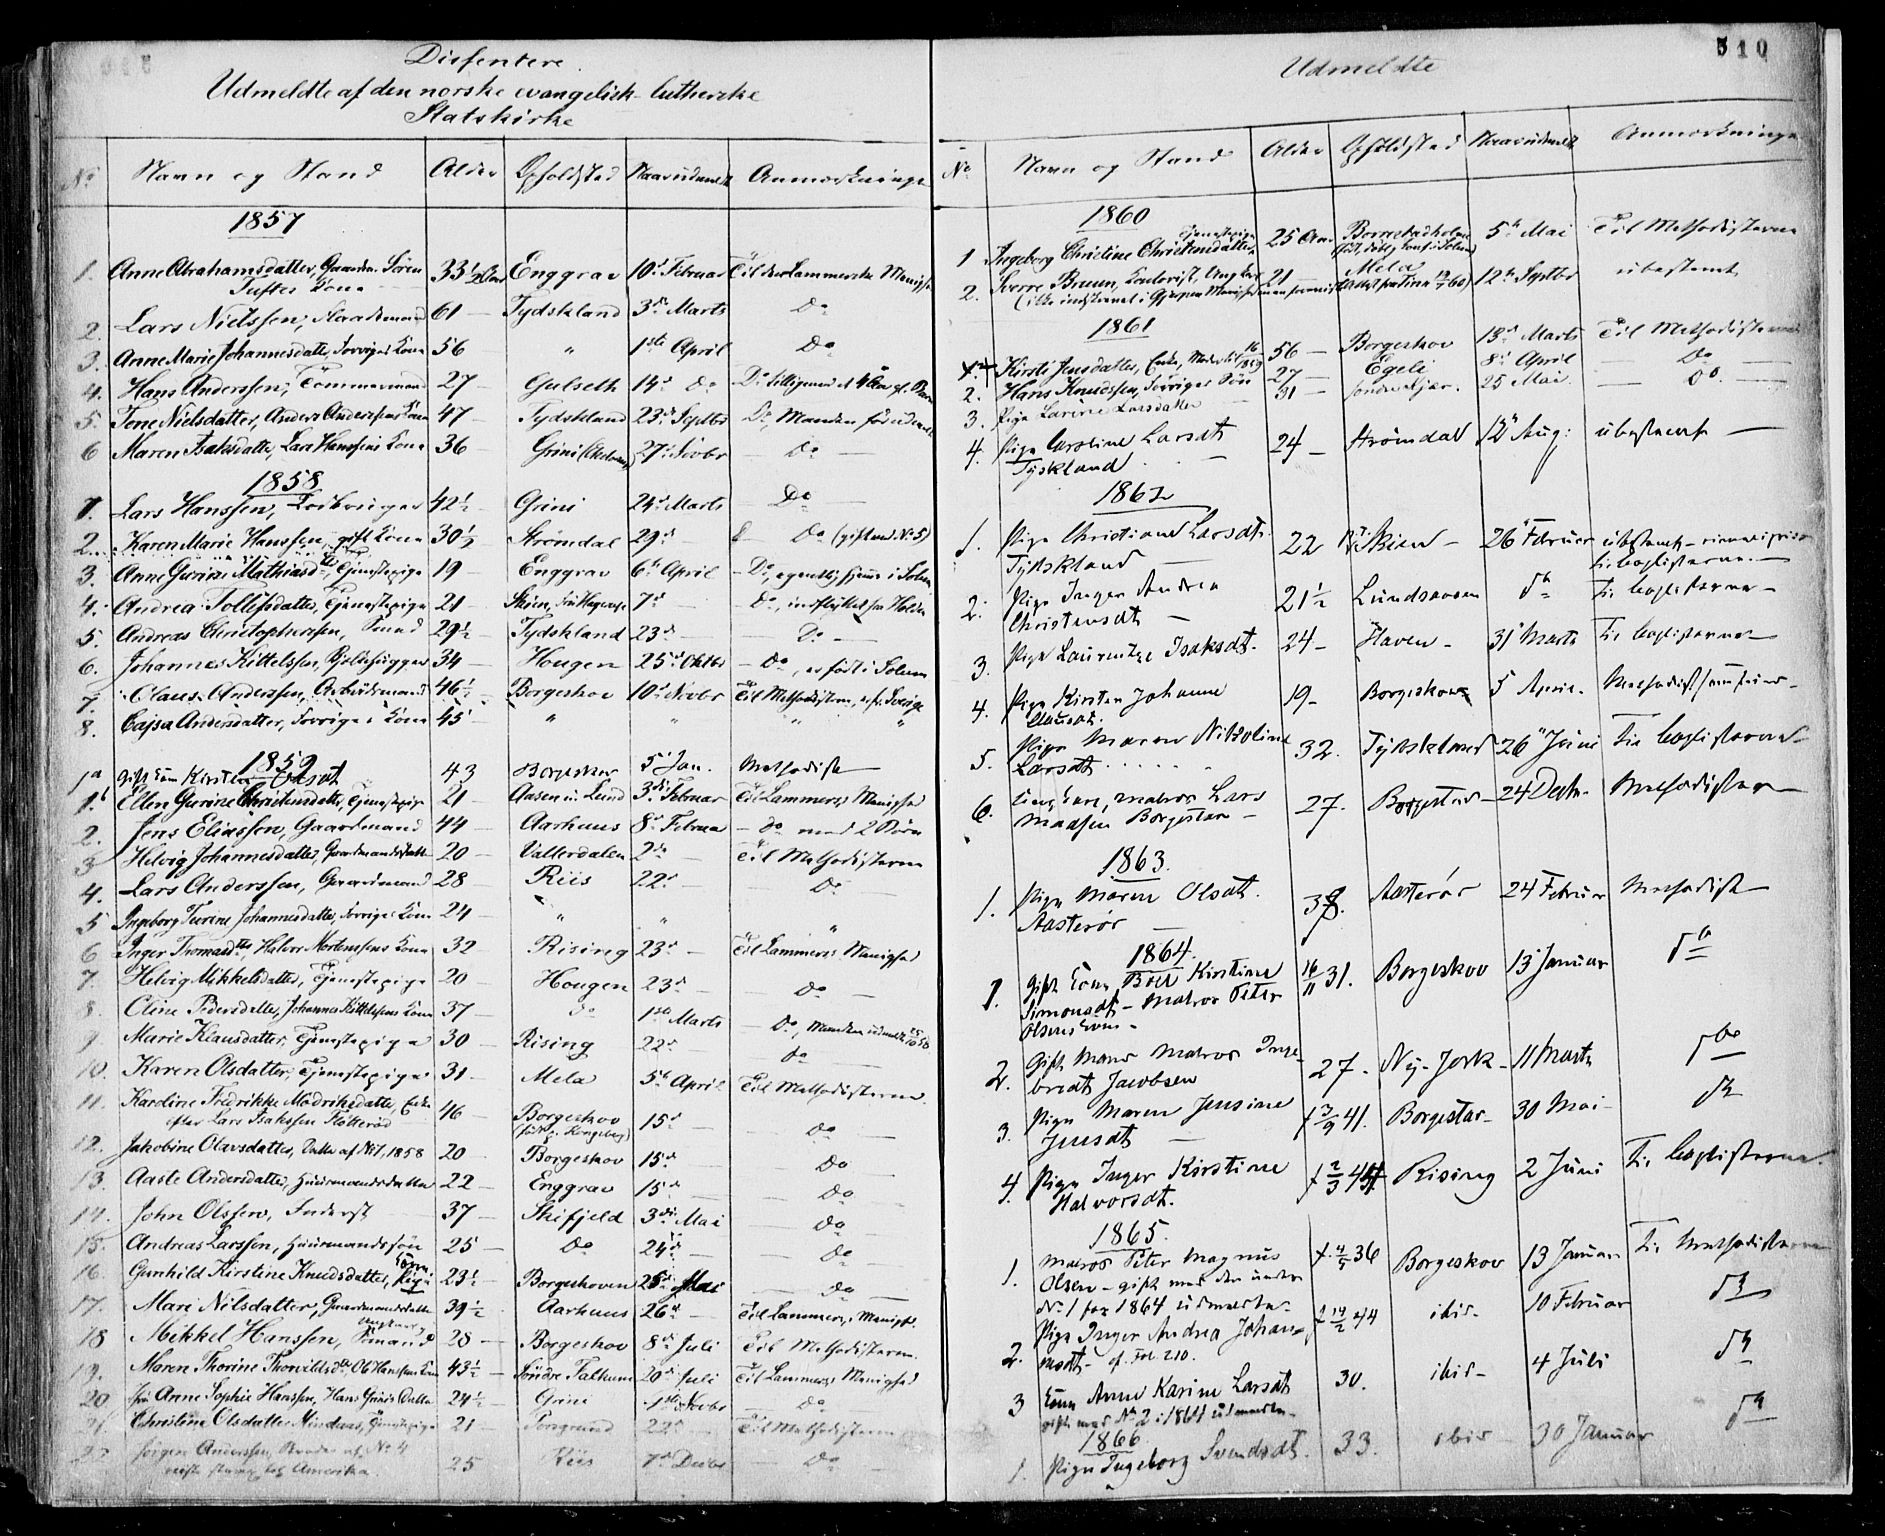 Dissentere
Udmeldte af den norske evangelisk-lutherske
Statskirke
No Navn og Stand Alder Opholdsted Naar udmeldt Anmærkninger
1857
1. Anne Abrahamsdatter, Gaardm. Søren 33½ Aar Enggrav 10de Februar Til den Lammerske Menighed
Tuftes Kone
2. Lars Nielssen, Gaardmand 61 — Tydskland 3die Marts Do
3. Anne Marie Johannesdatter, Forriges Kone 56 — " 1ste April Do
4. Hans Anderssen, Tømmermand 27 — Gulseth 14de do Do tilligemed
5. Tone Nielsdatter, Anders Anderssens Kone 47 — Tydskland 23de Septbr Do, Manden før udmeldt
6 Maren Isaksdatter, Lars Hanssens Kone 36 Grini 27de Novbr — Do —
1858
1. Lars Hanssen, Jordbruger 42½ — Grini 24de Marts Do —
2. Karen Marie Hanssen, gift Kone 30½ Strømdal 29de — Do (gift med No 5)
3. Anne Gurine Mathiasdtr, Tjenestepige 19 — Enggrav 6te April — Do, egentlig hjemme i Solum
4. Andrea Tollefsdatter, Tjenestepige 21 — Skien, 7de — Do, indflyttet fra Holden
5. Andreas Christophersen, Smed 29½ — Tydskland 23de — Do —
6. Johannes Kittelssen, Bjelkehugger 34 — Hougen 25de Oktbr — Do, er født i Solum
7. Claus Anderssen, Arbeidsmand 46½ — Borgeskov 10de Novbr Til Methodisterne, er fr. Sverige
8. Cajsa Andersdatter, Forriges Kone 45 " " " "
1859
1a Gift Kone Kirsten Olsdt 43 Borgeskov 5 Jan. Methodist
1.b Ellen Gurine Christensdatter, Tjenestepige 21 — Aasen u. Lund 3die Februar Til Lammers's Menighed
2. Jens Eliassen, Gaardmand 44 — Aarhuus 8de Februar — do med 2 Børn
3 Helvig Johannesdatter, Gaardmandsdatter 20 — Vallerdalen 2de Til Methodisterne
4. Lars Anderssen, Gaardmand 28 — Riis 22de — Do —
5 Ingeborg Turine Johannesdatter, Forriges Kone 24 — " " "
6 Inger Thomasdtr, Halvor Mortenssens Kone 32 — Rising 23de — Til Lammers's Menighed
7. Helvig Mikkelsdatter, Tjenestepige 20 — Hougen 23de — Do —
8. Eline Pedersdatter, Johannes Kittelssens Kone 37 — do 1ste Marts — Do, Manden udmeldt 25/10 58
9 Marie Klausdatter, Tjenestepige 30 — Rising 22de — do —
10. Karen Olsdatter, Tjenestepige 31 — Mela 5te April Til Methodisterne.
11. Karoline Fredrikke Modriksdatter, Enke 46 — Borgeskov 15de — Do —
efter Lars Isakssen Fløtterød (født i Kongsberg)
12. Jakobine Olavsdatter, Datter af No 1, 1858 20 — Borgeskov 15de — Do
13. Aaste Andersdatter, Huusmandsdatter 22 — Enggrav 15de — Do —
14. John Olssen, Inderst 37 — Skifjeld 3die Mai — Do
15. Andreas Larssen, Huusmandssøn 25 — do 24de — — Do —
16. Gunhild Kirstine Knudsdatter, Pige 23½ — Borgeskoven 25de Mai — Do —
17. Mari Nilsdatter, Gaardmandsdatter 39½ Aarhuus 26de — Til Lammers's Menighd.
18 Mikkel Hanssen, Sømand 28 — Borgeskov 8de Juli Til Methodisterne
19. Maren Thorine Thorvildsdtr, Ol Hanssens Kone 43½ — Søndre Falkum 20de Juli Til Lammers's Menighed
20 Anne Sophie Hanssen, Hans Grinis Datter 24½ — Grini 1ste Novbr — Do —
21. Christine Olsdatter Tjenestepige 21 — Porsgrund 22de — Til Methodisterne
22 Jørgen Anderssen, Broder af No 4 25 Riis 7de Decbr — Do —
Amerika.
510
Udmeldte
No Navn og Stand Alder Opholdsted Naar udmeldt Anmærkninger
1860
Tjenestepige
1 Ingeborg Christine Christensdatter 25 Aar Borgestadholmen 5te Mai Til Methodisterne
2. Sverre Bruun, Kontorist, Ungkarl 21 — Mela 12te Septbr ubestemt
1861
1. Kirsti Jensdatter, Enke, 56 — Borgeskov 13de Marts Til Methodisterne
2. Hans Knudssen, Forriges Søn 27 — Egeli 8de April Do —
3. Pige Larine Larsdatter 31 — 25 Mai — Do. —
4. Pige Caroline Larsdt 24 — Strømdal 12te Aug: ubestemt —
Tyskland
1862
1. Pige Christiane Larsdt. 22 Skien — 26de Februar ubestemt
Tydskland — til baptisterne. —
2. Pige Inger Andrea 21½ Lundsaasen do til baptisterne —
Christensdt —
3. Pige Laurentze Isaksdt. 24 — Haven — 31 Marts Til baptisterne
4. Pige Kirsten Johanne 19 — Borgeskov 5 April. Methodistsamfund —
Clausdt.
5. Pige Maren Nikoline 32. Tydskland 26de Juni Til baptisterne
Larsdt . . . . . .
6. Ungkarl, Matros Lars 27. Borgestad — 24 Decbr. Methodisterne
Madsen Borgestad —
1863.
1. Pige Maren Olsdt. 38. Aasterød 24 Februar Methodist
Aasterød —
1864.
1. Gift Kone, Boel Kirstine 16/11 31. Borgeskov 13 Januar do
Simonsdt — Matros Peter
Olsens Kone —
2. Gift Mand Matros Inge- 27. Ny-York — 11 Marts do
bredt Jacobsen
3. Pige Maren Jensine f 3/9 41. Borgestad — 30 Mai — do
Jensdt —
4. Pige Inger Kirstine f 2/3 44 Rising 2 Juni Til baptisterne.
Halvorsdt.
1865.
1. Matros Peter Magnus f. 4/5 36 Borgeskov 13 Januar Til Methodisterne
Olsen — gift med den under
No. 1 for 1864 udmeldte —
2. Pige Inger Andrea Johan- f 14/2 44 ibid — 10 Februar do
nesdt — cf. Fol 210.
3 Kone Anne Karine Larsdt 30. ibid — 4 Juli do
gift med No 2 i 1864 udmeldte —
1866.
1. Pige Ingeborg Svendsdt. 33. ibid — 30 Januar do